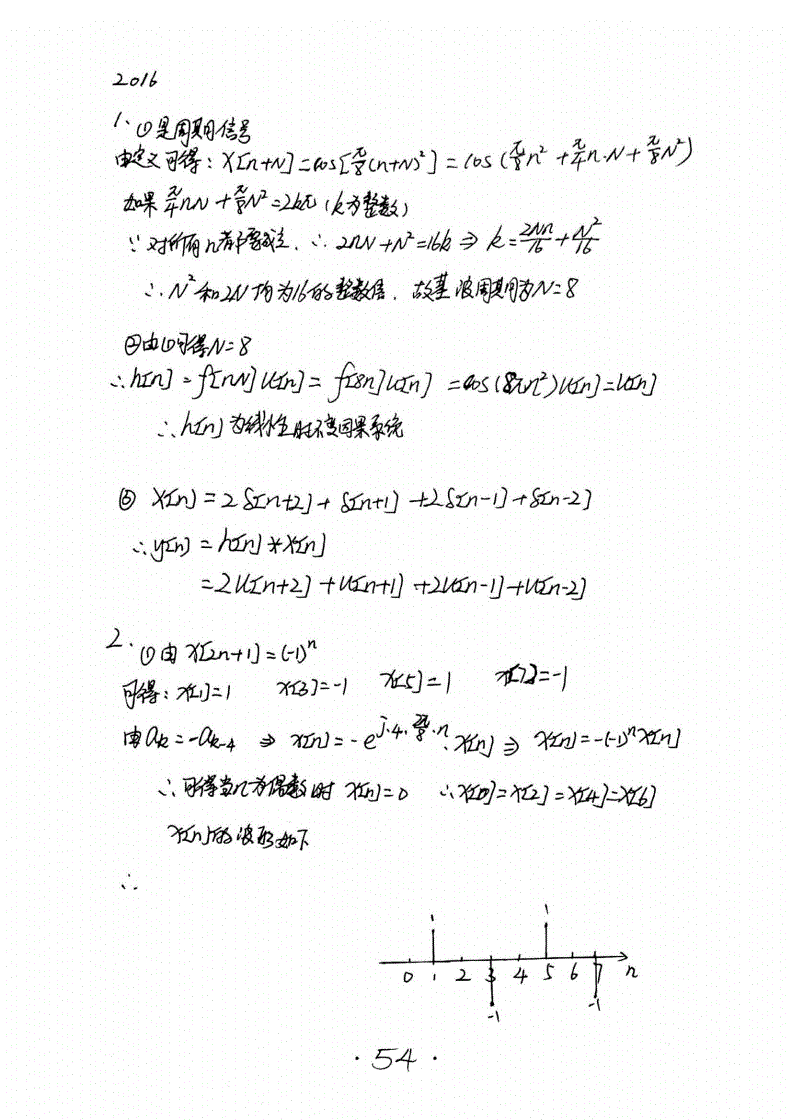 2016
1、① 是周期信号
由定义可得：x[n+N]=cos[π/8(n+N)²]=cos(π/8n²+π/4n·N+π/8N²)
如果 π/4nN+π/8N²=2kπ (k为整数)
∵对所有n都要成立. ∴ 2nN+N²=16k ⇒ k=2Nn/16+N²/16
∴N²和2N均为16的整数倍. 故基波周期为N=8
②由①可得N=8
∴h[n]=f[nN]u[n]=f[8n]u[n]=cos(8πn²)u[n]=u[n]
∴h[n]为线性时不变因果系统
③ x[n]=2δ[n+2]+δ[n+1]+2δ[n-1]+δ[n-2]
∴y[n]=h[n]*x[n]
=2u[n+2]+u[n+1]+2u[n-1]+u[n-2]
2.① 由x[2n+1]=(-1)ⁿ
可得：x[1]=1 x[3]=-1 x[5]=1 x[7]=-1
由aₖ=-aₖ₋₄ ⇒ x[n]=-e^{j·4·2π/8·n}·x[n] ⇒ x[n]=-(-1)ⁿx[n]
∴可得当n为偶数时 x[n]=0 ∴x[0]=x[2]=x[4]=x[6]
x[n]的波形如下
∴
1 1
0 1 2 3 4 5 6 7 n
-1 -1
·54·